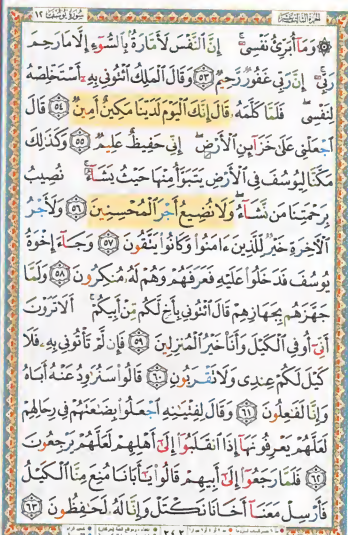 سُورَةُ يُوسُف ١٢
الجزء الثالث عشر
۞ وَمَآ أُبَرِّئُ نَفْسِىٓ ۚ إِنَّ ٱلنَّفْسَ لَأَمَّارَةٌۢ بِٱلسُّوٓءِ إِلَّا مَا رَحِمَ
رَبِّىٓ ۚ إِنَّ رَبِّى غَفُورٌ رَّحِيمٌ ٥٣ وَقَالَ ٱلْمَلِكُ ٱئْتُونِى بِهِۦٓ أَسْتَخْلِصْهُ
لِنَفْسِى ۖ فَلَمَّا كَلَّمَهُۥ قَالَ إِنَّكَ ٱلْيَوْمَ لَدَيْنَا مَكِينٌ أَمِينٌ ٥٤ قَالَ
ٱجْعَلْنِى عَلَىٰ خَزَآئِنِ ٱلْأَرْضِ ۖ إِنِّى حَفِيظٌ عَلِيمٌ ٥٥ وَكَذَٰلِكَ
مَكَّنَّا لِيُوسُفَ فِى ٱلْأَرْضِ يَتَبَوَّأُ مِنْهَا حَيْثُ يَشَآءُ ۚ نُصِيبُ
بِرَحْمَتِنَا مَن نَّشَآءُ ۖ وَلَا نُضِيعُ أَجْرَ ٱلْمُحْسِنِينَ ٥٦ وَلَأَجْرُ
ٱلْءَاخِرَةِ خَيْرٌ لِّلَّذِينَ ءَامَنُوا۟ وَكَانُوا۟ يَتَّقُونَ ٥٧ وَجَآءَ إِخْوَةُ
يُوسُفَ فَدَخَلُوا۟ عَلَيْهِ فَعَرَفَهُمْ وَهُمْ لَهُۥ مُنكِرُونَ ٥٨ وَلَمَّا
جَهَّزَهُم بِجَهَازِهِمْ قَالَ ٱئْتُونِى بِأَخٍ لَّكُم مِّنْ أَبِيكُمْ ۚ أَلَا تَرَوْنَ
أَنِّىٓ أُوفِى ٱلْكَيْلَ وَأَنَا۠ خَيْرُ ٱلْمُنزِلِينَ ٥٩ فَإِن لَّمْ تَأْتُونِى بِهِۦ فَلَا
كَيْلَ لَكُمْ عِندِى وَلَا تَقْرَبُونِ ٦٠ قَالُوا۟ سَنُرَٰوِدُ عَنْهُ أَبَاهُ
وَإِنَّا لَفَٰعِلُونَ ٦١ وَقَالَ لِفِتْيَٰنِهِ ٱجْعَلُوا۟ بِضَٰعَتَهُمْ فِى رِحَالِهِمْ
لَعَلَّهُمْ يَعْرِفُونَهَآ إِذَا ٱنقَلَبُوٓا۟ إِلَىٰٓ أَهْلِهِمْ لَعَلَّهُمْ يَرْجِعُونَ
٦٢ فَلَمَّا رَجَعُوٓا۟ إِلَىٰٓ أَبِيهِمْ قَالُوا۟ يَٰٓأَبَانَا مُنِعَ مِنَّا ٱلْكَيْلُ
فَأَرْسِلْ مَعَنَآ أَخَانَا نَكْتَلْ وَإِنَّا لَهُۥ لَحَٰفِظُونَ ٦٣
٢٤٢